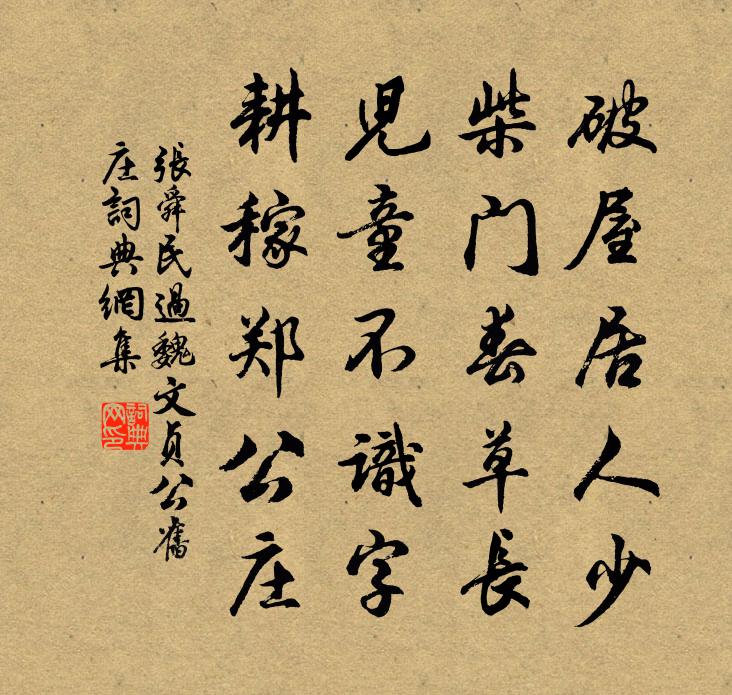 破屋居人少
柴门春草長
児童不識字
耕稼郑公庄
張舜民過魏文貞公舊
庄詞典網集
詞典
网印